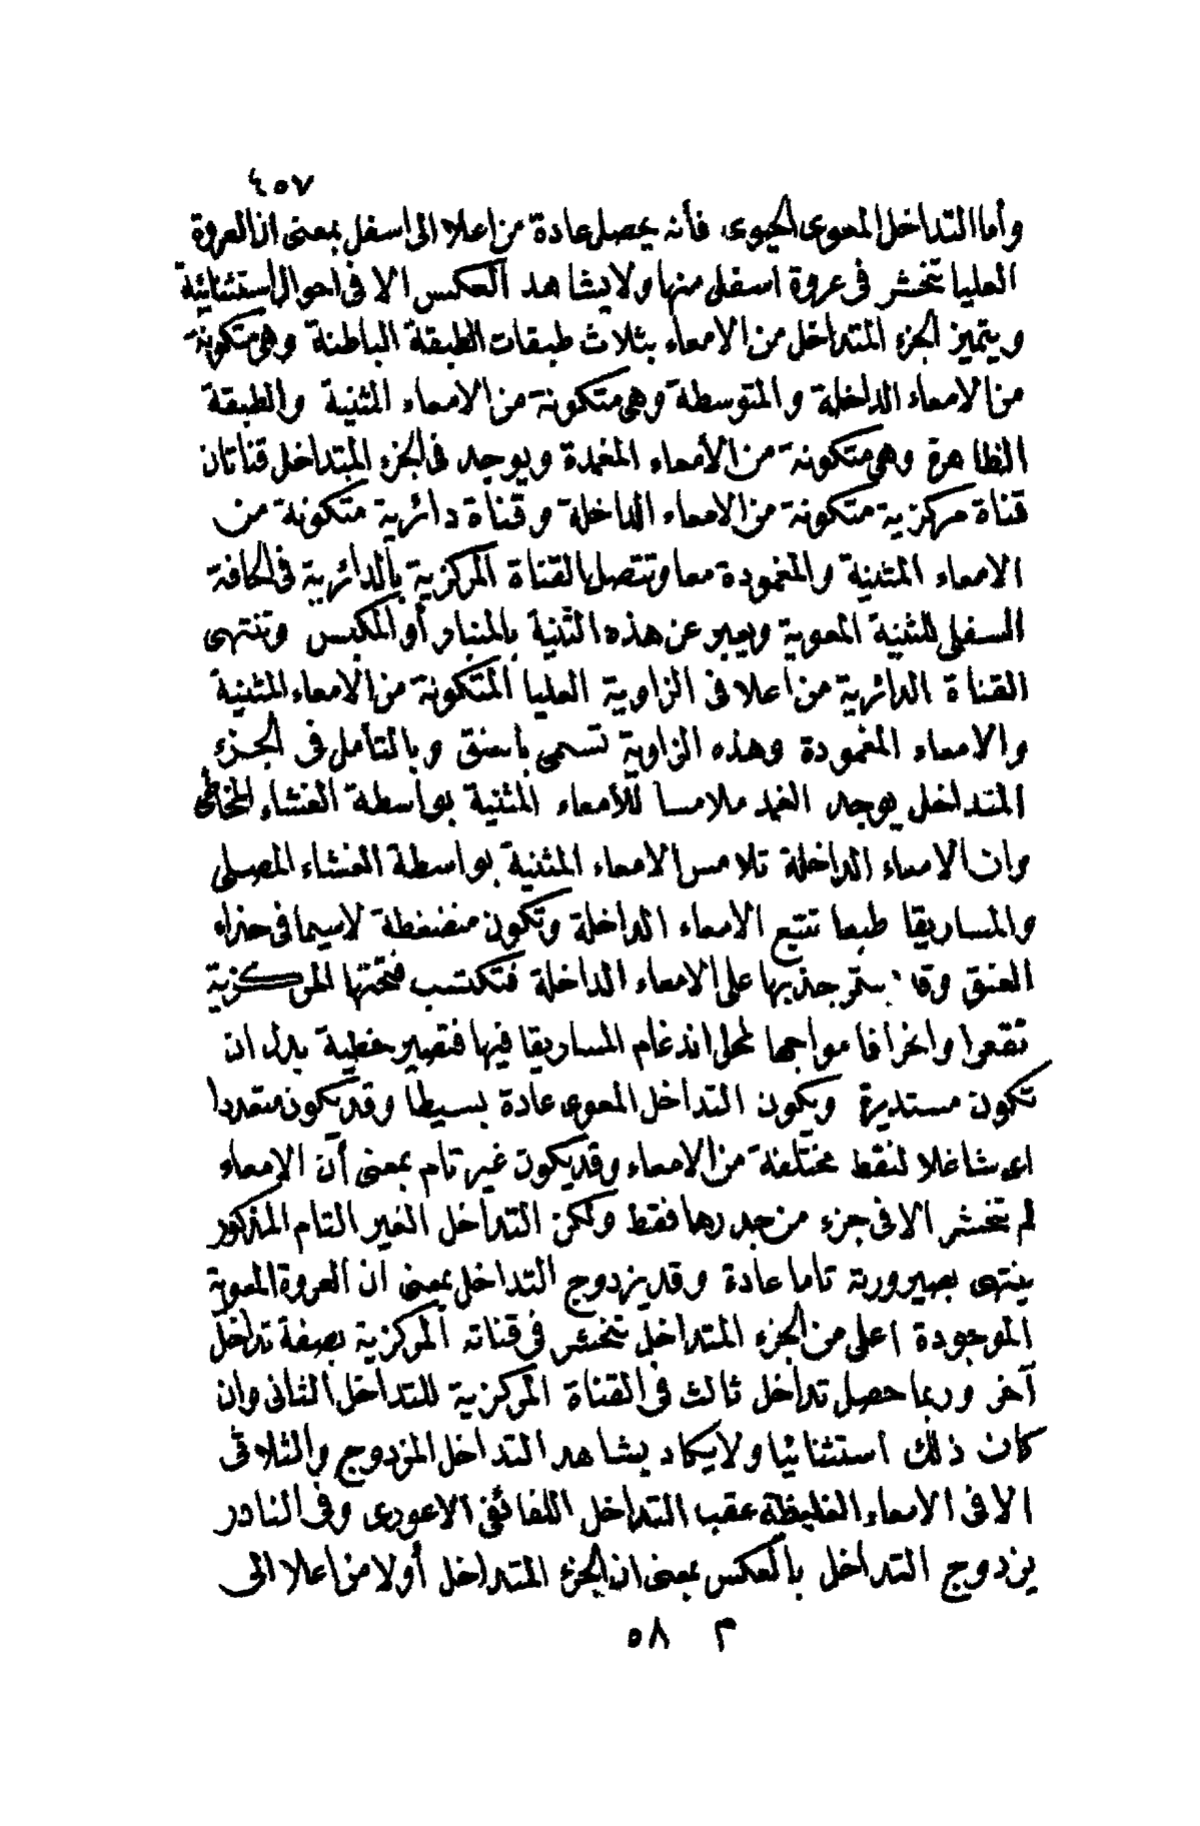 ٤٥٧
وأما التداخل المعوى الحيوى فأنه يحصل عادة من اعلا الى اسفل بمعنى ان العروة
العليا تنخشر فى عروة اسفل منها ولا يشاهد العكس الا فى احوال استثنائية
ويتميز الجزء المتداخل من الامعاء بثلاث طبقات الطبقة الباطنة وهى متكونة
من الامعاء الداخلة والمتوسطة وهى متكونة من الامعاء المثنية والطبقة
الظاهرة وهى متكونة من الأمعاء المغمدة ويوجد فى الجزء المتداخل قناتان
قناة مركزية متكونة من الامعاء الداخلة وقناة دائرية متكونة من
الامعاء المثنية والمغمودة معا وتتصل القناة المركزية بالدائرية فى الحافة
السفلى للثنية المعوية ويعبر عن هذه الثنية بالمنبار أو المكبس وتنتهى
القناة الدائرية من اعلا فى الزاوية العليا المتكونة من الامعاء المثنية
والامعاء المغمودة وهذه الزاوية تسمى بالعنق وبالتأمل فى الجزء
المتداخل يوجد الغمد ملامسا للأمعاء المثنية بواسطة الغشاء المخاطى
وان الامعاء الداخلة تلامس الامعاء المثنية بواسطة الغشاء المصلى
والمساريقا طبعا تتبع الامعاء الداخلة وتكون منضغطة لاسيما فى حذاء
العنق يستمر جذبها على الامعاء الداخلة فتكتسب فتحتها المركزية
تقعرا وانحرافا مواجها لمحل اندغام المساريقا فيها فتصير خطية بدل ان
تكون مستديرة ويكون التداخل المعوى عادة بسيطا وقد يكون متعددا
اى شاغلا لنقط مختلفة من الامعاء وقد يكون غير تام بمعنى أن الامعاء
لم تنخشر الا فى جزء من جدرها فقط ولكن التداخل الغير التام المذكور
ينتهى بصيرورته تاما عادة وقد يزدوج التداخل بمعنى ان العروة المعوية
الموجودة اعلى من الجزء المتداخل تنخشر فى قناته المركزية بصفة تداخل
آخر وربما حصل تداخل ثالث فى القناة المركزية للتداخل الثانى وان
كان ذلك استثنائيا ولا يكاد يشاهد التداخل المزدوج والثلاثى
الا فى الامعاء الغليظة عقب التداخل اللفائفى الاعورى وفى النادر
يزدوج التداخل بالعكس بمعنى ان الجزء المتداخل أولا من اعلا الى
م ٥٨